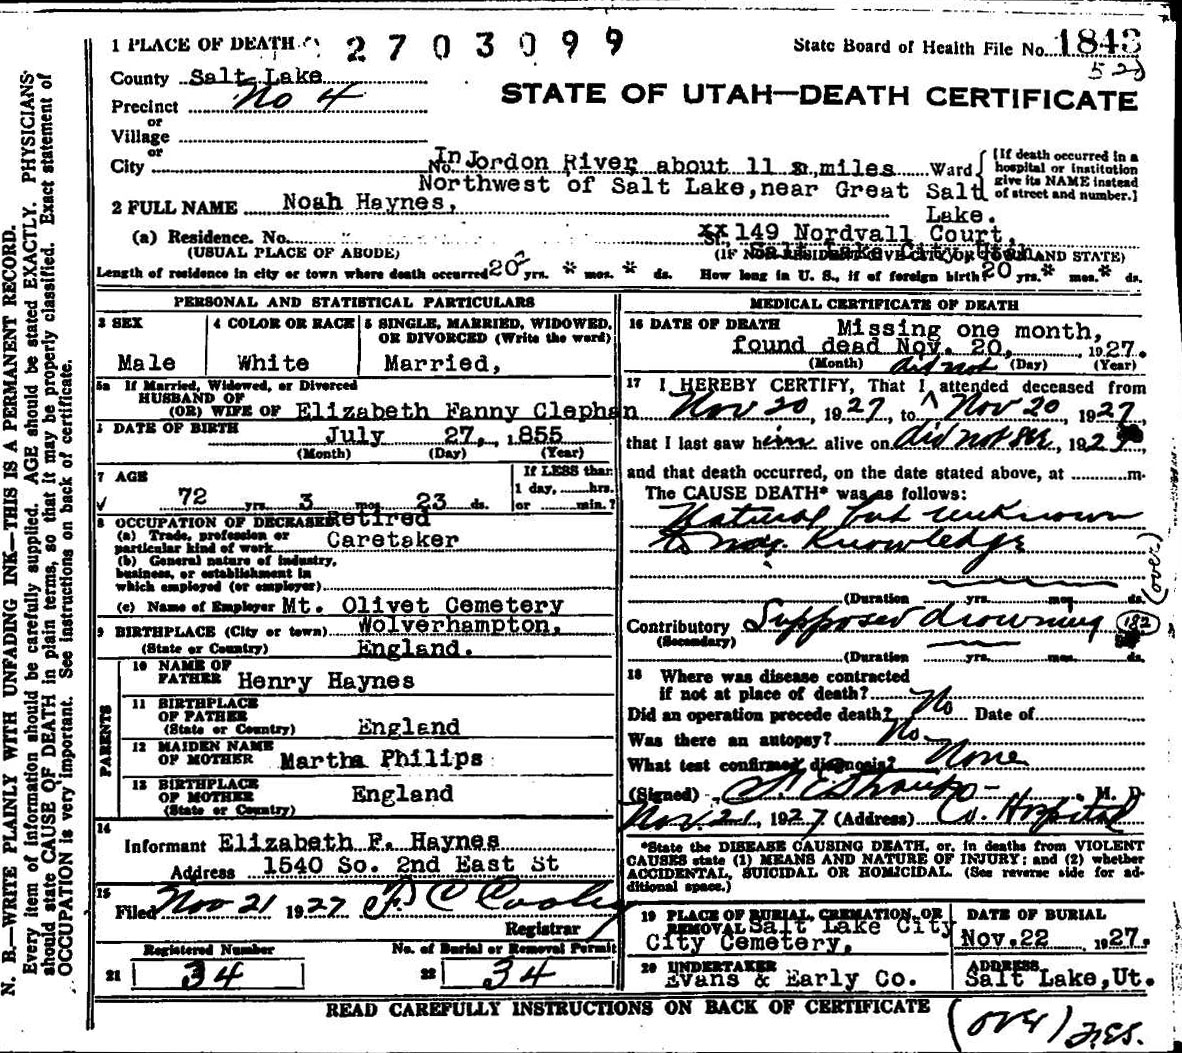 1 PLACE OF DEATH 2703099
State Board of Health File No. 1843
520
County Salt Lake
Precinct No 4
or
Village
or
City
STATE OF UTAH—DEATH CERTIFICATE
No. In Jordon River, about 11 miles Ward
Northwest of Salt Lake, near Great Salt
Lake.
[If death occurred in a
hospital or institution
give its NAME instead
of street and number.]
2 FULL NAME Noah Haynes,
(a) Residence. No. St. 149 Nordvall Court,
Salt Lake City, Utah
(USUAL PLACE OF ABODE) (IF NON-RESIDENT GIVE CITY OR TOWN AND STATE)
Length of residence in city or town where death occurred 20 yrs. * mos. * ds. How long in U. S., if of foreign birth 20 yrs. * mos. * ds.
PERSONAL AND STATISTICAL PARTICULARS
3 SEX
Male
4 COLOR OR RACE
White
5 SINGLE, MARRIED, WIDOWED,
OR DIVORCED (Write the word)
Married,
5a If Married, Widowed, or Divorced
HUSBAND OF
(OR) WIFE OF Elizabeth Fanny Clephan
DATE OF BIRTH July 27, 1855
(Month) (Day) (Year)
7 AGE
72 yrs. 3 mos. 23 ds.
If LESS than
1 day, hrs.
or min.?
8 OCCUPATION OF DECEASED Retired
(a) Trade, profession or
particular kind of work Caretaker
(b) General nature of industry,
business, or establishment in
which employed (or employer)
(c) Name of Employer Mt. Olivet Cemetery
9 BIRTHPLACE (City or town) Wolverhampton,
(State or Country) England.
PARENTS
10 NAME OF
FATHER Henry Haynes
11 BIRTHPLACE
OF FATHER
(State or Country) England
12 MAIDEN NAME
OF MOTHER Martha Philips
13 BIRTHPLACE
OF MOTHER
(State or Country) England
14
Informant Elizabeth F. Haynes
Address 1540 So. 2nd East St
15
Filed Nov 21 1927 F. C Cooley
Registrar
Registered Number
21 34
No. of Burial or Removal Permit
22 34
MEDICAL CERTIFICATE OF DEATH
16 DATE OF DEATH Missing one month,
found dead Nov. 20, 1927.
(Month) (Day) (Year)
did not
17 I HEREBY CERTIFY, That I attended deceased from
Nov 20, 1927 to Nov 20, 1927
that I last saw him alive on did not see, 1927,
and that death occurred, on the date stated above, at m.
The CAUSE DEATH* was as follows:
Natural but unknown
to my Knowledge
(over)
(Duration yrs. mos. ds.
Contributory Supposed drowning 182
(Secondary)
(Duration yrs. mos. ds.
18 Where was disease contracted
if not at place of death?
Did an operation precede death? No Date of
Was there an autopsy? No
What test confirmed diagnosis? None
(Signed) M. D.
Nov. 21, 1927 (Address) Co. Hospital
*State the DISEASE CAUSING DEATH, or, in deaths from VIOLENT
CAUSES state (1) MEANS AND NATURE OF INJURY; and (2) whether
ACCIDENTAL, SUICIDAL OR HOMICIDAL. (See reverse side for ad-
ditional space.)
19 PLACE OF BURIAL, CREMATION, OR
REMOVAL Salt Lake City
City Cemetery,
DATE OF BURIAL
Nov.22 1927.
20 UNDERTAKER
Evans & Early Co.
ADDRESS
Salt Lake, Ut.
READ CAREFULLY INSTRUCTIONS ON BACK OF CERTIFICATE
(over)
N. B.—WRITE PLAINLY WITH UNFADING INK—THIS IS A PERMANENT RECORD.
Every item of information should be carefully supplied. AGE should be stated EXACTLY. PHYSICIANS
should state CAUSE OF DEATH in plain terms, so that it may be properly classified. Exact statement of
OCCUPATION is very important. See instructions on back of certificate.